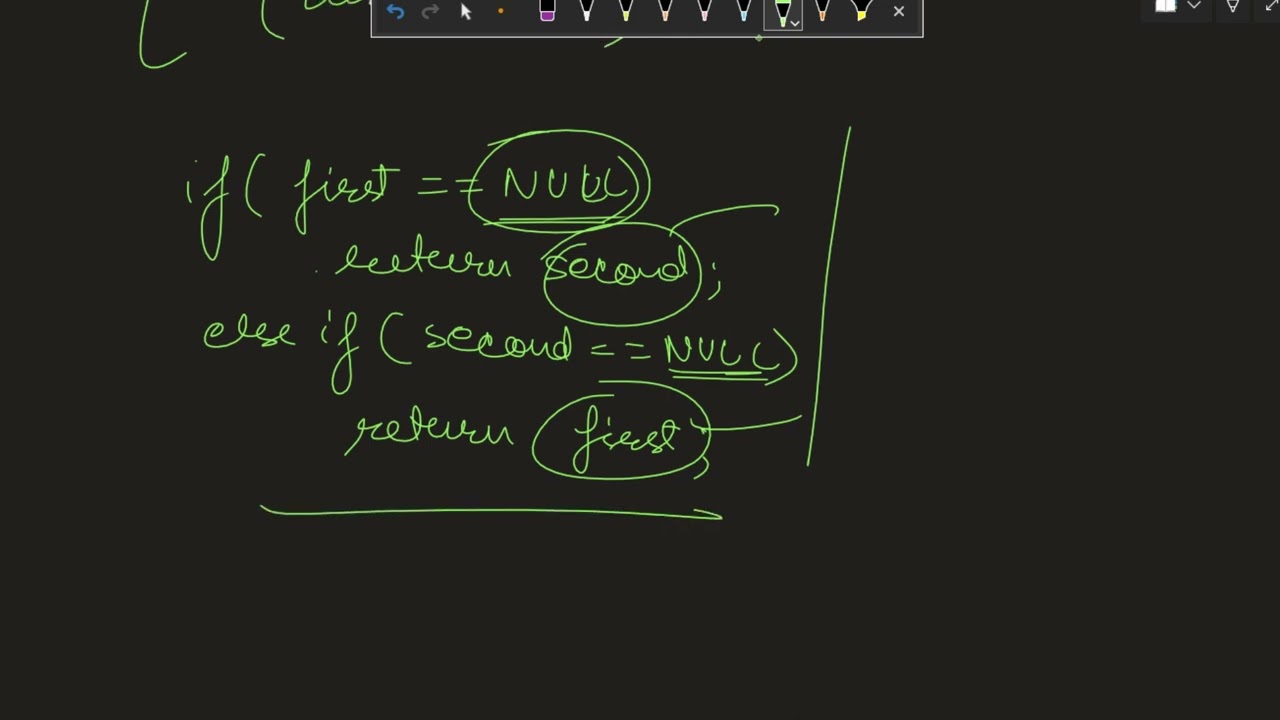 if( first == NULL)
return second;
else if( second == NULL)
return first;